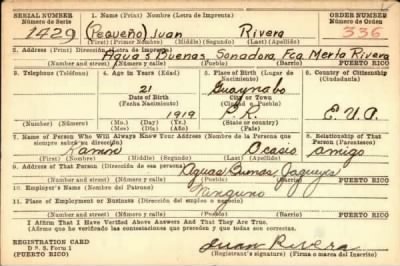 SERIAL NUMBER 1. Name (Print) Nombre (Letra de Imprenta) ORDER NUMBER
Número de Serie Número de Orden
1429 (Pequeño) Juan Rivera 336
First (Primer Nombre) Middle (Segundo) Last (Apellido)
2. Address (Print) Dirección (Letra de Imprenta)
Aguas Buenas Sonadora Fca Merlo Rivera
Number and street (Número y calle) Town (Pueblo) Barrio (Barrio) PUERTO RICO
3. Telephone (Teléfono) 4. Age in Years (Edad) 5. Place of Birth (Lugar de Nacimiento) 6. Country of Citizenship (Ciudadanía)
21 Guaynabo
Date of Birth (Fecha Nacimiento) City or Town (Ciudad o Pueblo)
1919 P.R. E.U.A.
Number (Número) (Mo.) (Mes) (Day) (Día) (Yr.) (Año) State or country (País)
7. Name of Person Who Will Always Know Your Address (Nombre de la Persona que siempre sabrá su dirección) 8. Relationship of That Person (Parentesco)
Ramon Ocasio amigo
First (Nombre) Middle (Segundo) Last (Apellido)
9. Address of That Person (Dirección de esa persona)
Aguas Buenas Jagueyes
Number and street (Número y calle) (Pueblo) Barrio (Barrio) PUERTO RICO
10. Employer's Name (Nombre del Patrono)
Ninguno
11. Place of Employment or Business (Dirección del empleo o negocio)
Number and street (Número y calle) Town (Pueblo) Barrio (Barrio) PUERTO RICO
I Affirm That I Have Verified Above Answers And That They Are True.
Afirmo que he verificado las contestaciones que preceden y que todas son correctas.
REGISTRATION CARD
D. S. S. Form 1
(PUERTO RICO)
Juan Rivera
Registrant's signature) (Firma o marca del Inscrito)